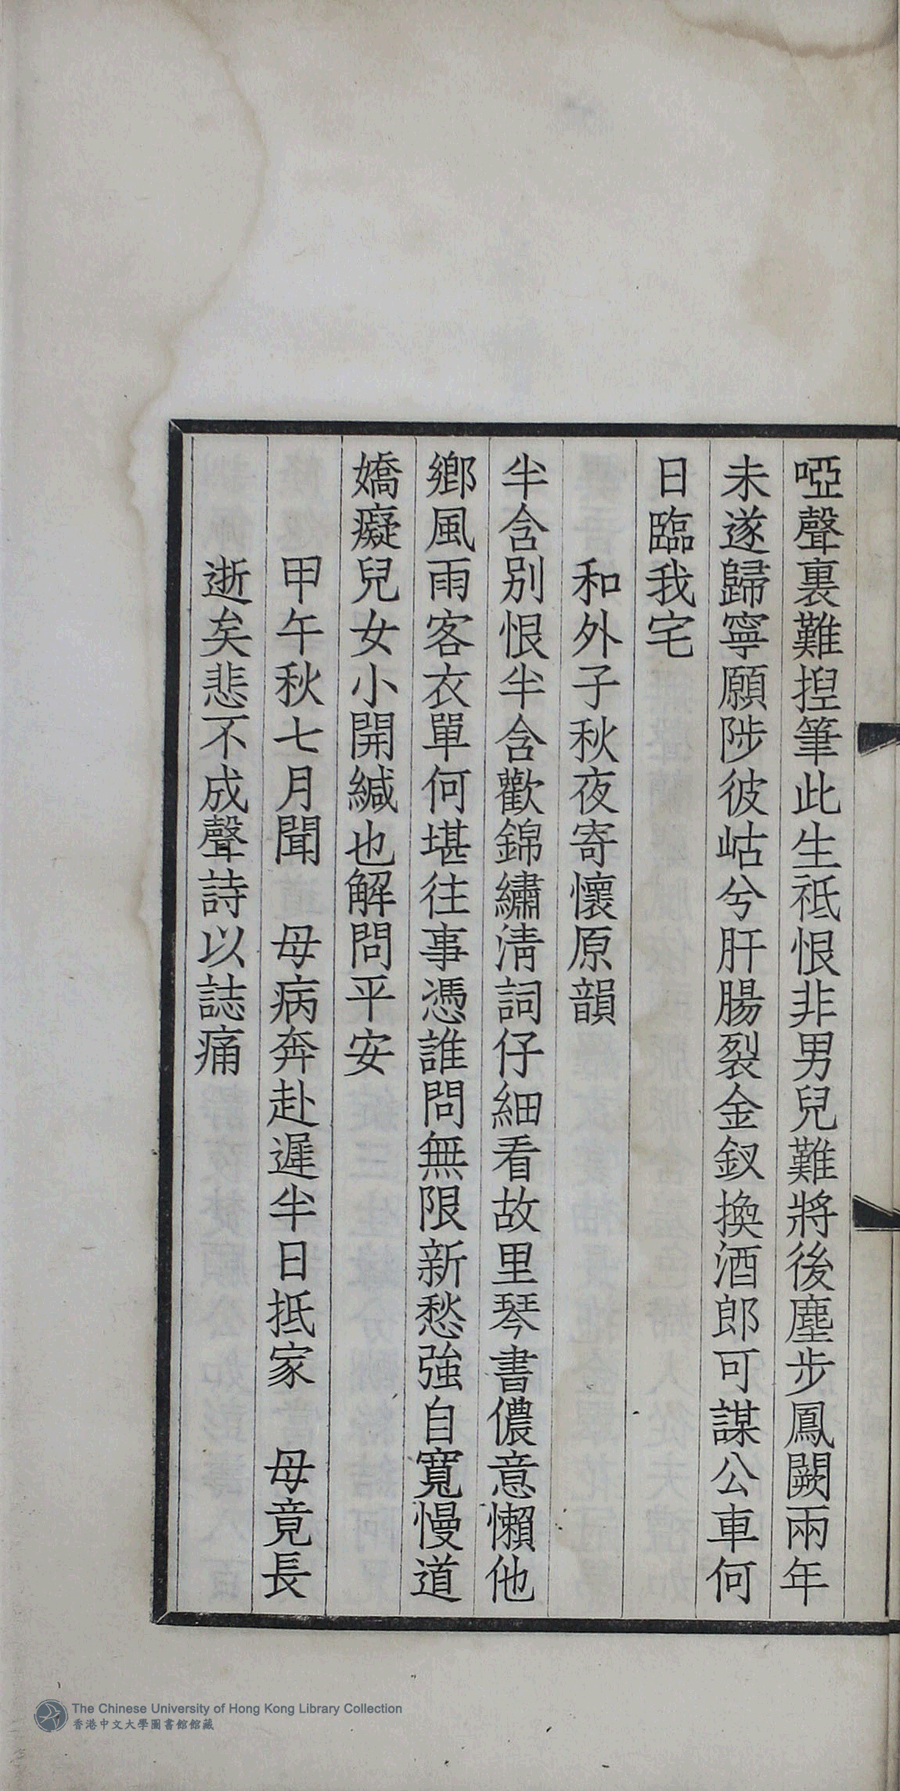 啞聲裏難揑筆此生祗恨非男兒難將後塵步鳳闕兩年
未遂歸寧願陟彼岵兮肝腸裂金釵換酒郎可謀公車何
日臨我宅
和外子秋夜寄懷原韻
半含別恨半含歡錦繡淸詞仔細看故里琴書儂意懶他
鄉風雨客衣單何堪往事憑誰問無限新愁強自寬慢道
嬌癡兒女小開緘也解問平安
甲午秋七月聞　母病奔赴遲半日抵家　母竟長
逝矣悲不成聲詩以誌痛
The Chinese University of Hong Kong Library Collection
香港中文大學圖書館館藏